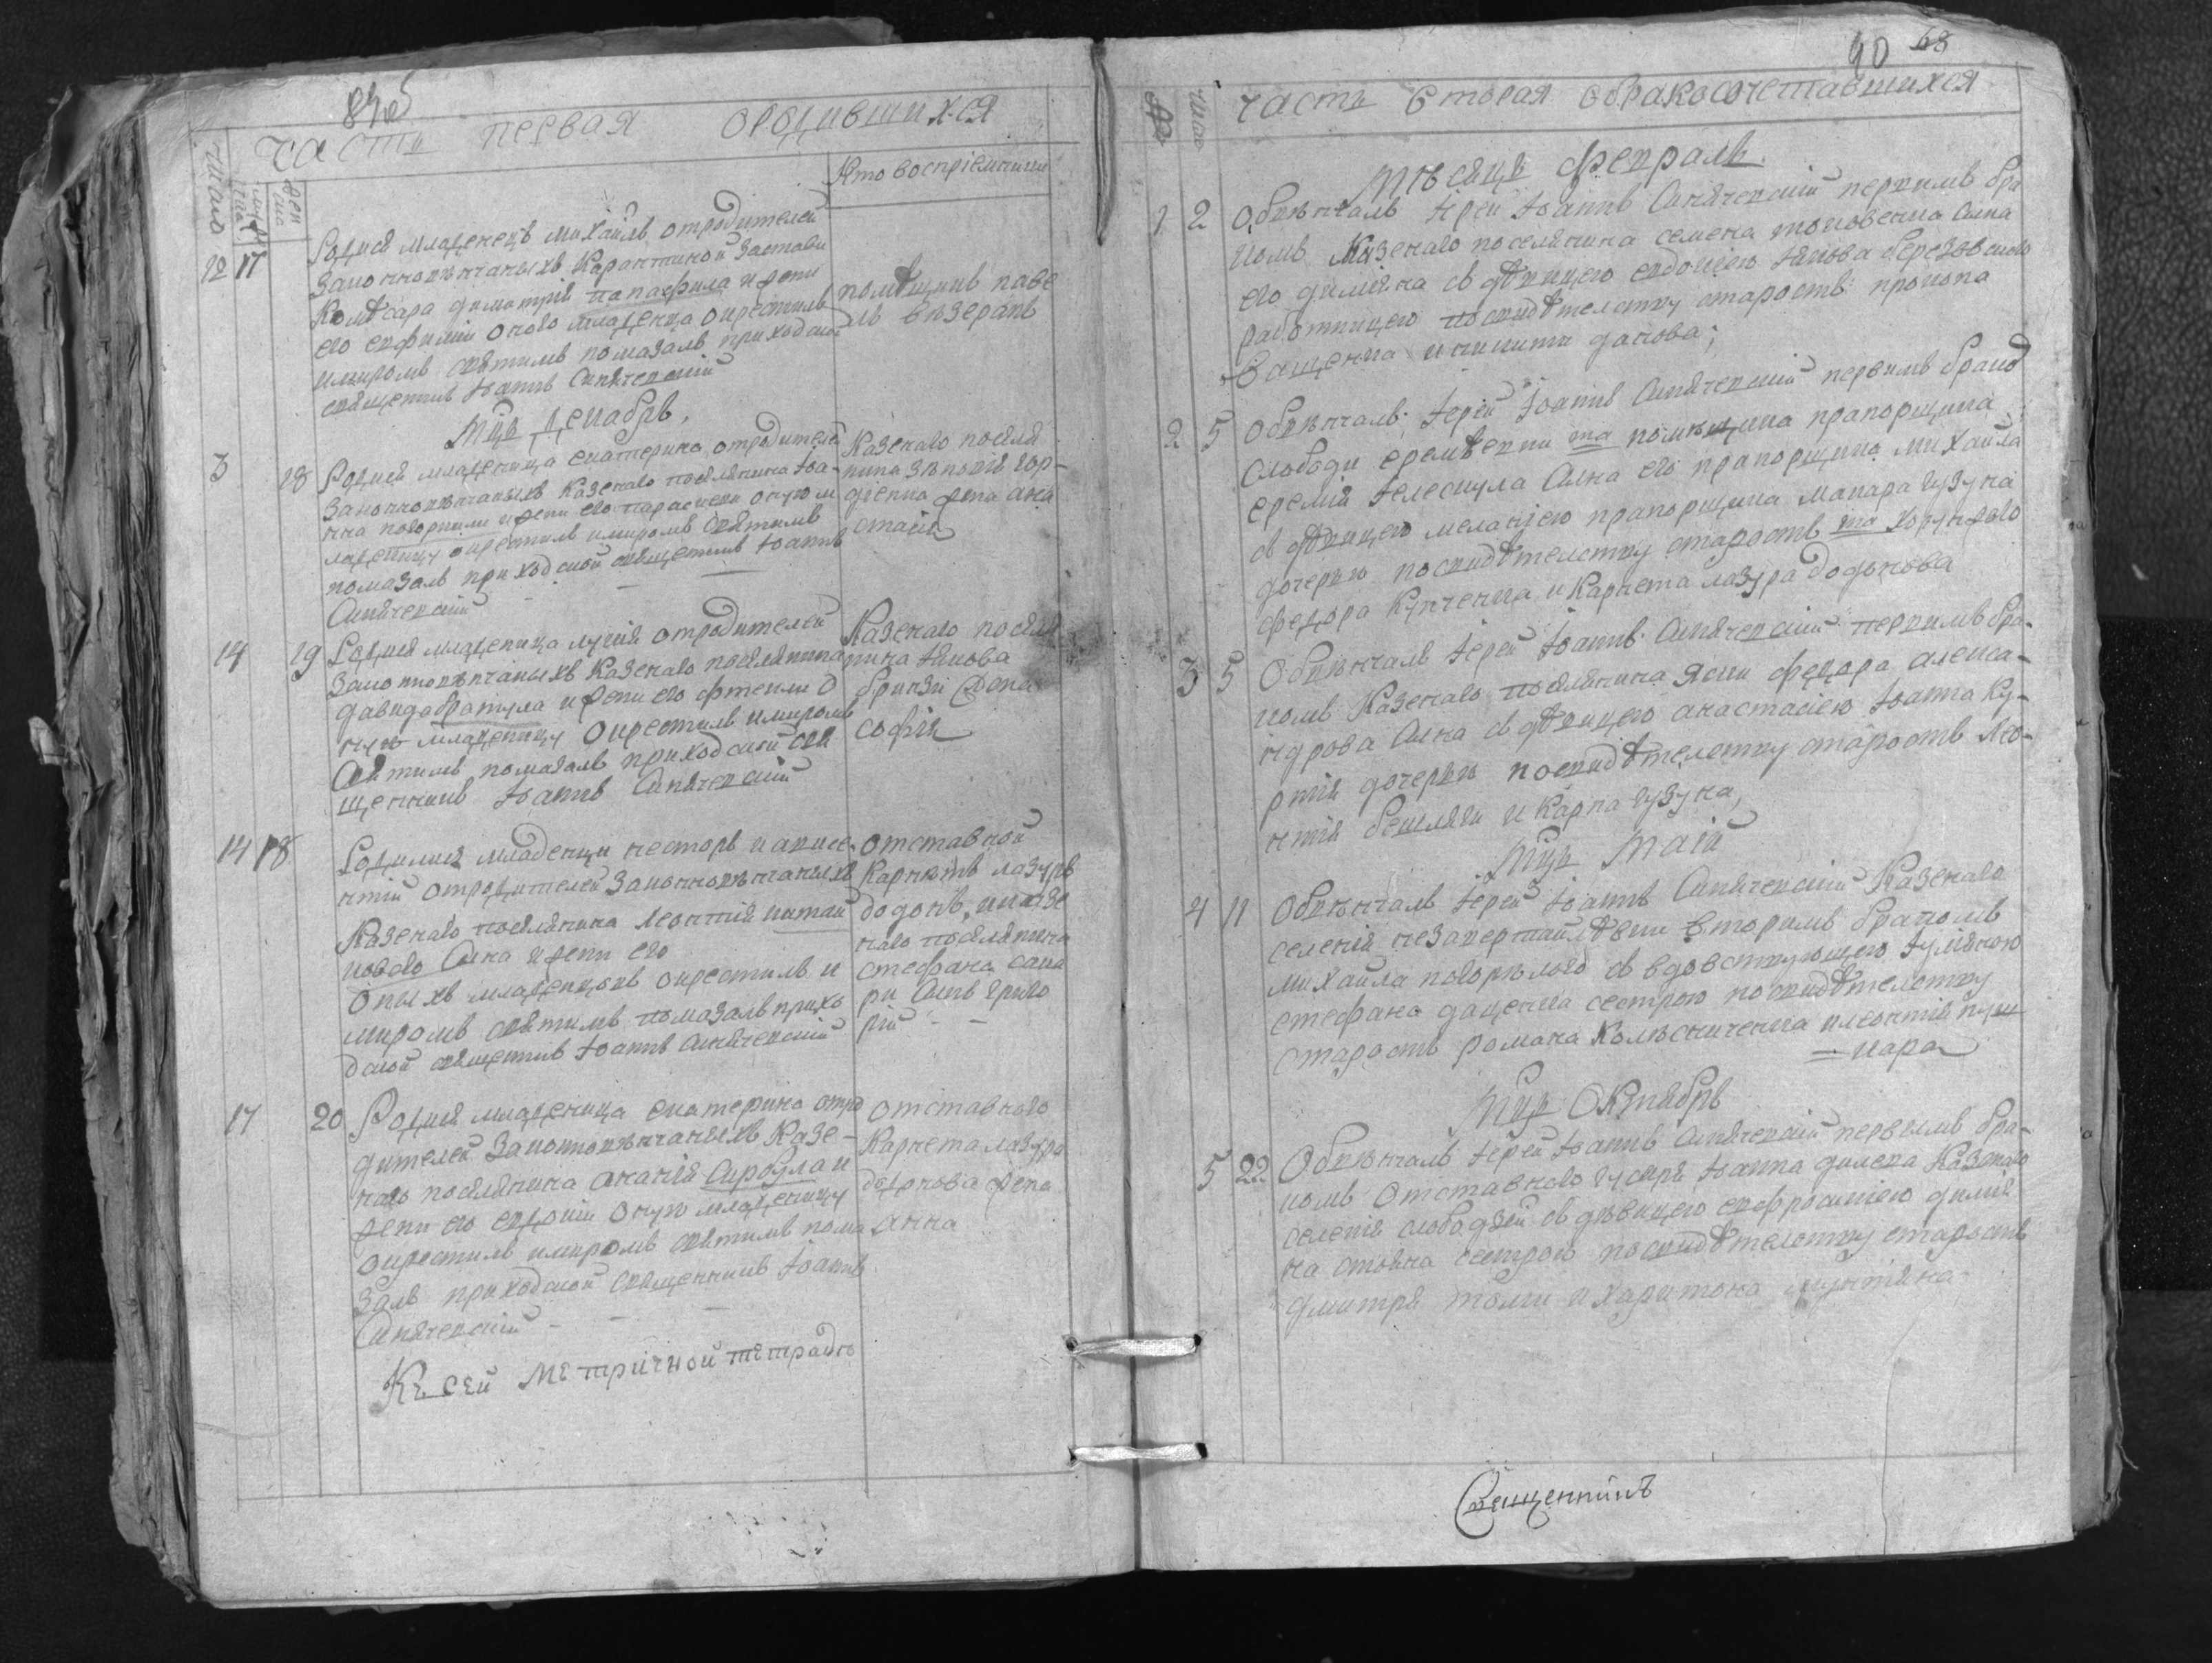 часть первая ородившихся
Кто воспріемники
12 17 Родися младенецъ михаилъ отродителей
законновѣнчаныхъ Карантиной Застави
Комѣсара димитрія папафила и жени
его евфиміи оного младенца окрестилъ
имиромъ святимъ помазалъ приходской
священикъ Іоаннъ
помѣщикъ паве
лъ
Мцъ декабрь
3 18 Родися младеница екатерина отродителей
законновѣнчаныхъ казенаго поселянина Іоа-
нна и жени его параскеви оную м
ладеницу окрестилъ имиромъ святимъ
помазалъ приходской священикъ Іоаннъ
Казенаго поселя
нина зѣновія гор-
діенка жена ана
стасія
14 19 Родися младеница лукія отродителей
законновѣнчаныхъ Казенаго поселянина
давида братула и жени его
младеницу окрестилъ имиромъ
святимъ помазалъ приходской свя
щенникъ Іоаннъ
Казенаго поселя
нина Якова
бринзи жена
софія
14 18 Родилися младенци несторъ и авксе-
нтій отродителей законновѣнчаныхъ
Казенаго поселянина леонтія
сина и жени его
оныхъ младенцовъ окрестилъ и
миромъ святимъ помазалъ прихо
дской священикъ Іоаннъ
отставной
Карнетъ лазуръ
додонъ, иказе
наго поселянина
стефана
синъ григо
рій
17 20 Родися младеница екатерина отро
дителей законновѣнчаныхъ Казе-
наго поселянина ананія Сирбула и
жени его евдокіи оную младеницу
окрестилъ имиромъ святимъ пома
залъ приходской священникъ Іоаннъ
отставного
Карнета лазура
додонова жена
анна
Къ сей метричной тетрадѣ
90 68
часть вторая обракосочетавшихся
Мѣсяцъ февраль
1 2 Обвѣнчалъ Іерей Іоаннъ первимъ бра
комъ Казенаго поселянина семена сина
его диміяна съ дѣвицею евдокіею Якова березовского
работницею посвидѣтелству старостъ прокопа
и никити данова;
2 5 Обвѣнчалъ Іерей Іоаннъ первимъ брако
слободи еремѣевки помѣщика прапорщика
еремія телескула сина его прапорщика михаила
съ дѣвицею меланіею прапорщика макара гузуна
дочерью посвидѣтелству старостъ хорунжого
федора Купченка и Карнета лазура додонова
3 5 Обвѣнчалъ Іерей Іоаннъ первимъ бра-
комъ Казенаго поселянина яски федора алекса-
ндрова сина съ дѣвицею анастасіею Іоанна Ку-
ртія дочерью посвидѣтелству старостъ лео-
нтія бешляги и Карпа гузуна,
Мцъ Маій
4 11 Обвѣнчалъ Іерей Іоаннъ Казенаго
селенія вторимъ бракомъ
михаила погорѣлого съ вдовствующею Іуліяною
стефана даценка сестрою посвидѣтелству
старостъ романа Колѣсниченка илеонтія пуш
=каря
Мцъ Октябрь
5 22 Обвѣнчалъ Іерей Іоаннъ первимъ бра-
комъ отставного гусара Іоанна Казенаго
селенія слободзей съ дѣвицею евфросиніею диміа
на стояна сестрою посвидѣтелству старостъ
дмитрія и харитона мунтяна
Священникъ